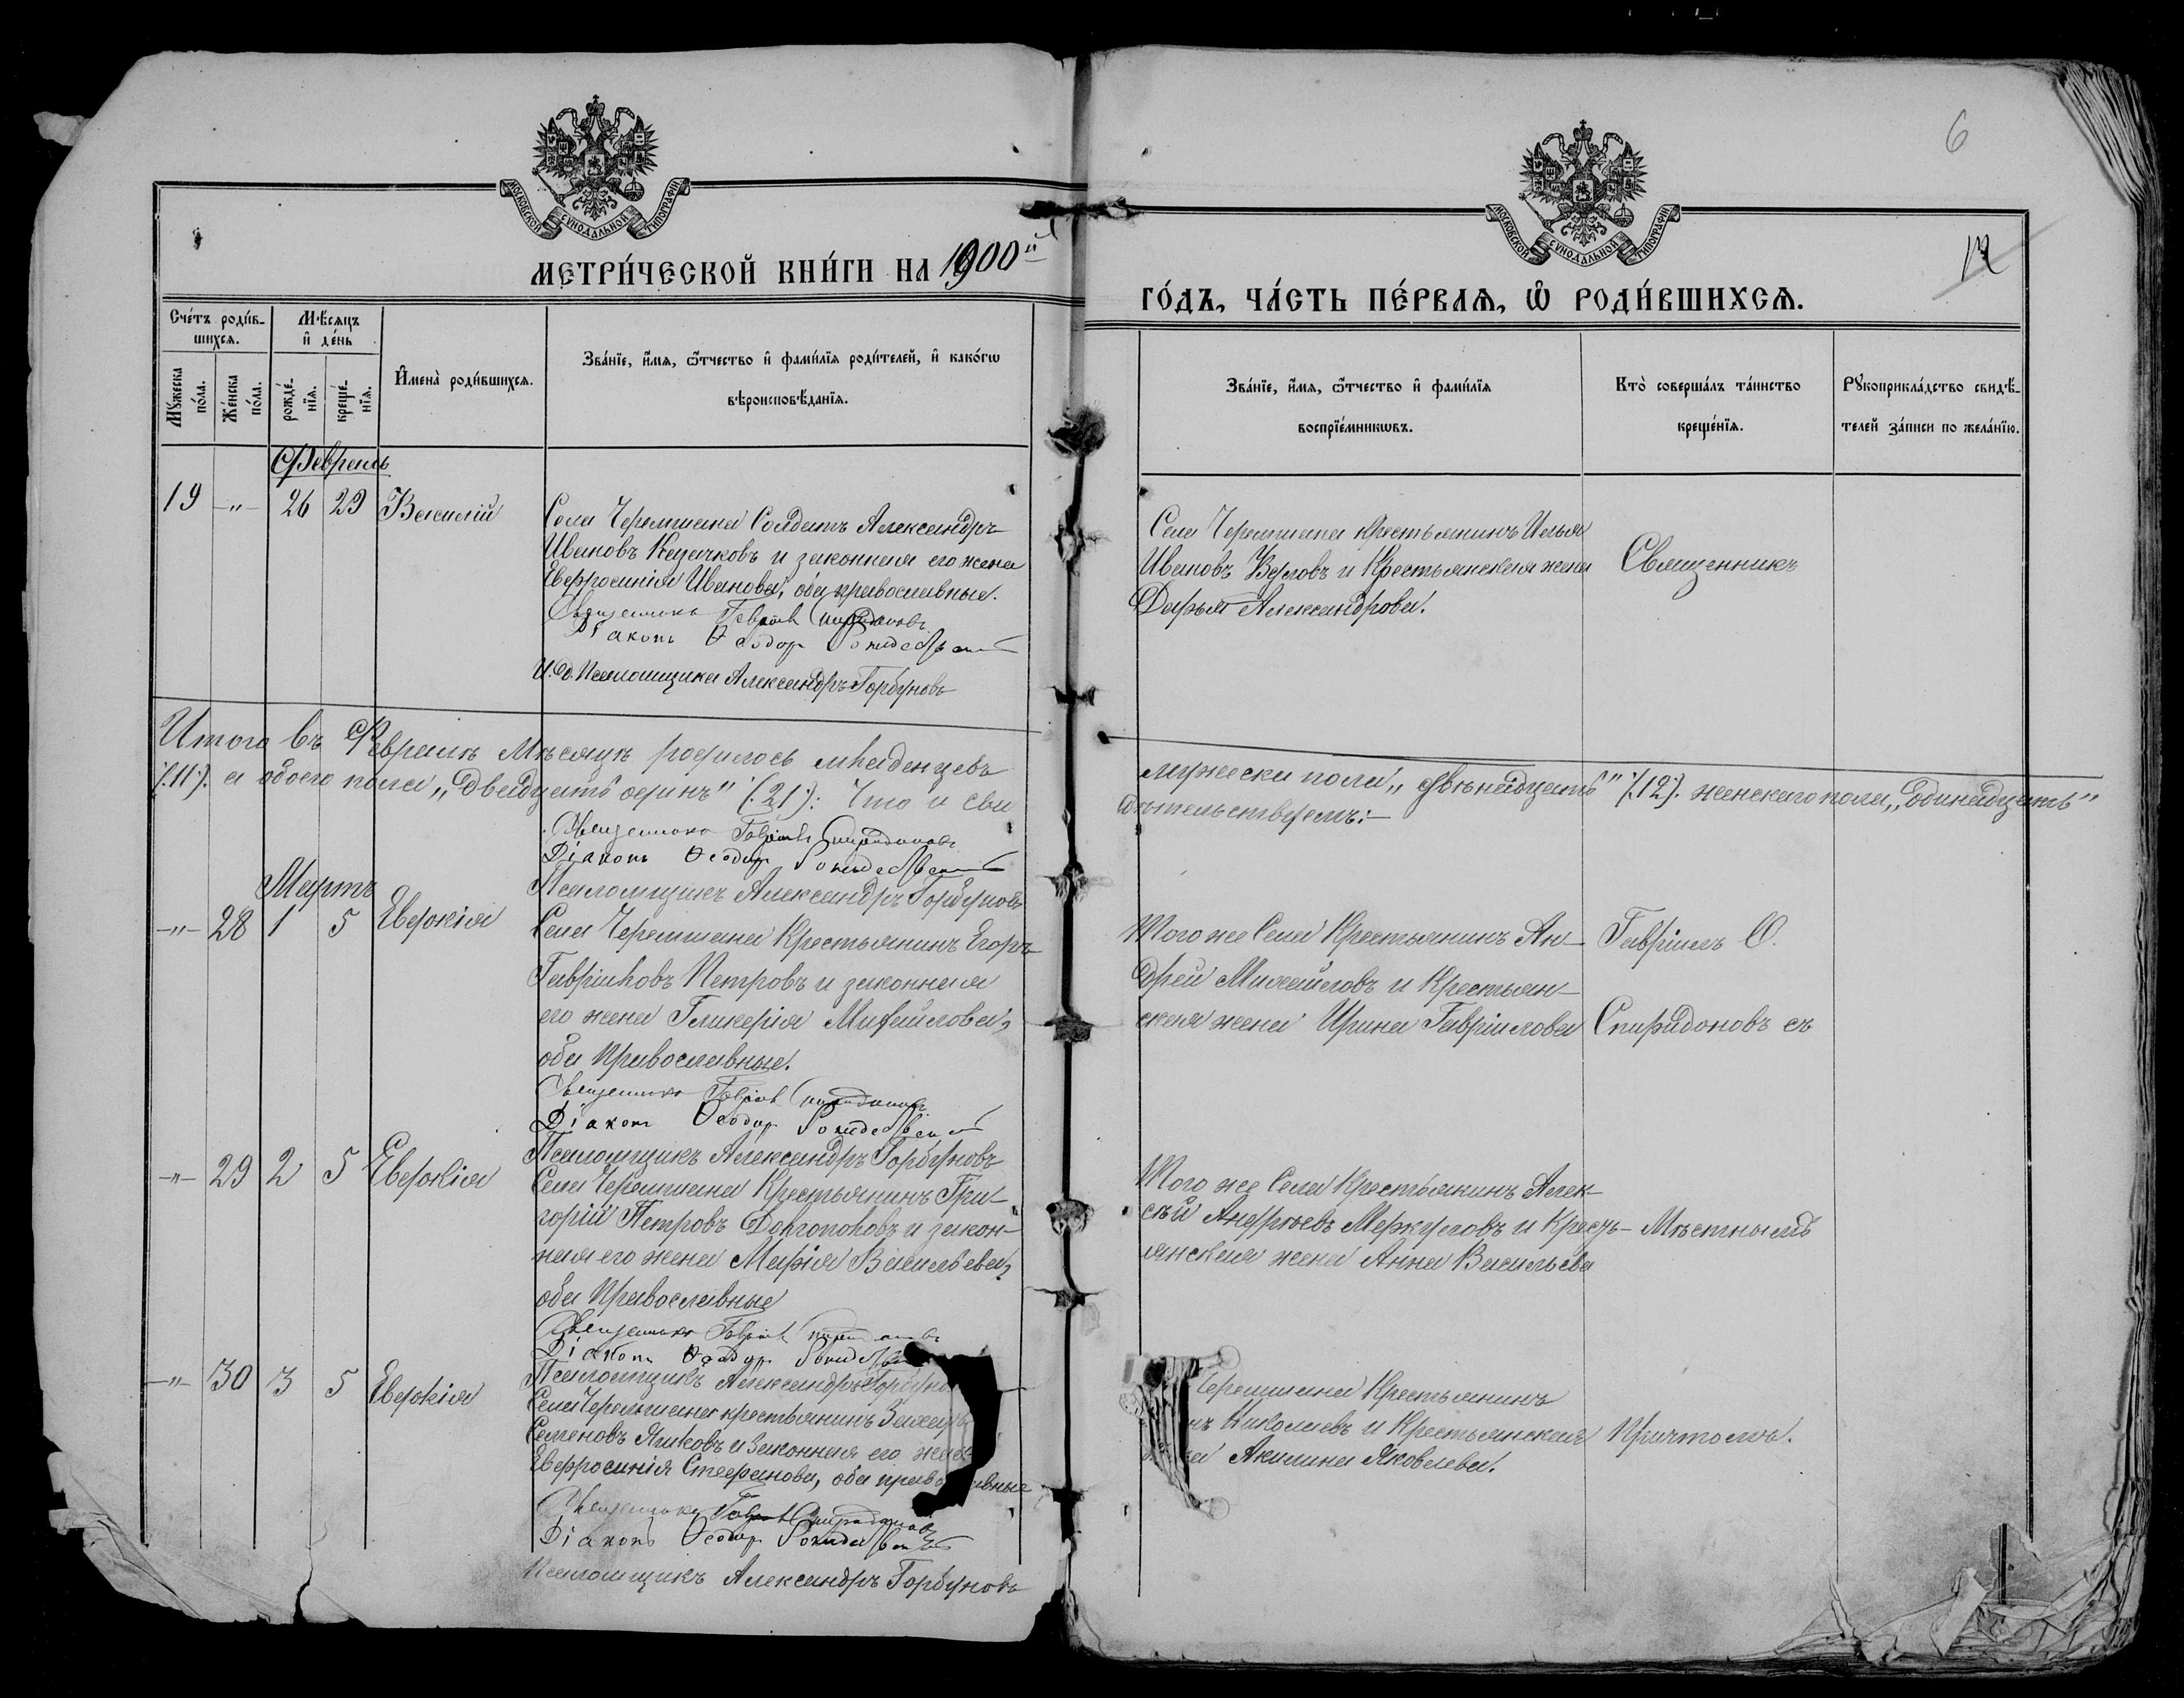 6
МОСКОВСКОЙ СѴНОДАЛЬНОЙ ТИПОГРАФІИ
МОСКОВСКОЙ СѴНОДАЛЬНОЙ ТИПОГРАФІИ
12
МЕТРИ́ЧЕСКОЙ КНИ́ГИ НА 1900й
ГО́ДЪ, ЧА́СТЬ ПЕ́РВАѦ, Ѡ҆ РОДИ́ВШИХСѦ.
Сче́тъ роди́в-
шихсѧ.
Мѣ́сѧцъ
и҆ де́нь
Мꙋ́жеска
по́ла.
Же́нска
по́ла.
рожде́-
нїѧ.
креще́-
нїѧ.
И҆мена̀ роди́вшихсѧ.
Зва́нїе, и҆́мѧ, ѻ҆́тчество и҆ фами́лїѧ роди́телей, и҆ како́гѡ
вѣроисповѣ́данїѧ.
Зва́нїе, и҆́мѧ, ѻ҆́тчество и҆ фами́лїѧ
воспрїе́мникѡвъ.
Кто̀ соверша́лъ та́инство
креще́нїѧ.
Рꙋкоприкла́дство свидѣ́-
телей за́писи по жела́нїю.
Февраль
19 -"- 26 29 Василій
Села Черемшана Солдатъ Александръ
Ивановъ Казачковъ и законная его жена
Евфросинія Иванова, оба православные.
Священникъ Гавріилъ Спиридоновъ
Діаконъ Ѳеодоръ Рождественскій
И. д. Псаломщика Александръ Горбуновъ
Села Черемшана крестьянинъ Илья
Ивановъ и Крестьянская жена
Дарья Александрова.
Священникъ
Итого въ Февралѣ Мѣсяцѣ родилось младенцевъ
мужеска пола „двѣнадцать" (.12.). женскаго пола „одинадцать"
(.11.). а обоего пола „двадцать одинъ" (.21.): Что и сви
дѣтельствуемъ:-
Священникъ Гавріилъ Спиридоновъ
Діаконъ Ѳеодоръ Рождественскій
Псаломщикъ Александръ Горбуновъ
Мартъ
-"- 28 1 5 Евдокія
Села Черемшана Крестьянинъ Егоръ
Гавріиловъ Петровъ и законная
его жена Гликерія Михайлова,
оба Православные.
Священникъ Гавріилъ Спиридоновъ
Діаконъ Ѳеодоръ Рождественскій
Псаломщикъ Александръ Горбуновъ
Того же Села Крестьянинъ Ан-
дрей Михайловъ и Крестьян-
ская жена Ирина Гавріилова
Гавріилъ О.
Спиридоновъ съ
-"- 29 2 5 Евдокія
Села Черемшана Крестьянинъ Гри-
горій Петровъ Долгополовъ и закон-
ная его жена Марія Васильева,
оба Православные
Священникъ Гавріилъ Спиридоновъ
Діаконъ Ѳеодоръ
Псаломщикъ Александръ
Того же Села Крестьянинъ Алек-
сѣй Андреевъ Меркуловъ и Кресть-
янская жена Анна Васильева
Мѣстнымъ
-"- 30 3 5 Евдокія
Села Черемшана крестьянинъ
Семеновъ и Законная его жена
Евфросинія Стефанова, оба
Священникъ Гавріилъ Спиридоновъ
Діаконъ Ѳеодоръ Рождественскій
Псаломщикъ Александръ Горбуновъ
Черемшана Крестьянинъ
Николаевъ и Крестьянская
Акилина Яковлева.
Причтомъ.